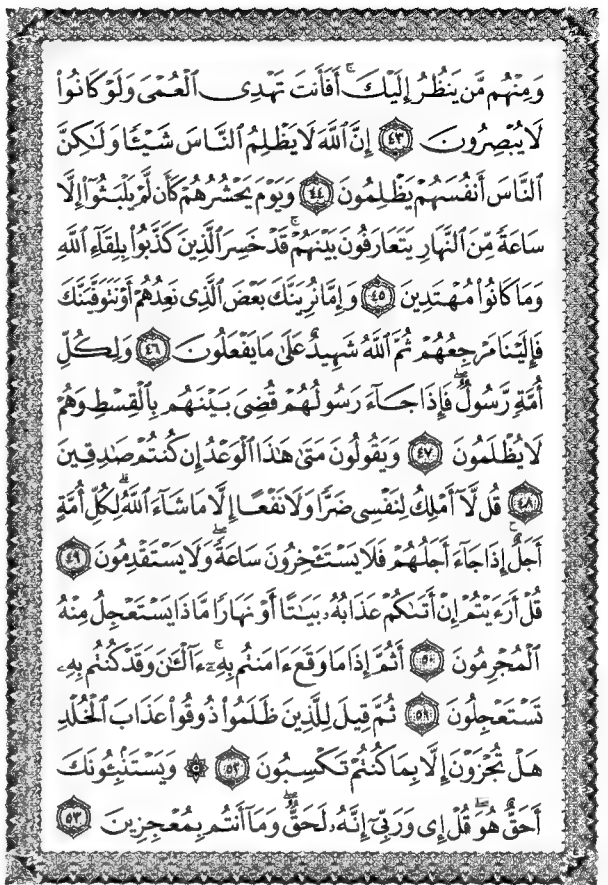 وَمِنْهُم مَّن يَنظُرُ إِلَيْكَ ۚ أَفَأَنتَ تَهْدِى الْعُمْىَ وَلَوْ كَانُوا۟
لَا يُبْصِرُونَ ﴿٤٣﴾ إِنَّ اللَّهَ لَا يَظْلِمُ النَّاسَ شَيْـًٔا وَلَـٰكِنَّ
النَّاسَ أَنفُسَهُمْ يَظْلِمُونَ ﴿٤٤﴾ وَيَوْمَ يَحْشُرُهُمْ كَأَن لَّمْ يَلْبَثُوٓا۟ إِلَّا
سَاعَةً مِّنَ النَّهَارِ يَتَعَارَفُونَ بَيْنَهُمْ ۚ قَدْ خَسِرَ الَّذِينَ كَذَّبُوا۟ بِلِقَآءِ اللَّهِ
وَمَا كَانُوا۟ مُهْتَدِينَ ﴿٤٥﴾ وَإِمَّا نُرِيَنَّكَ بَعْضَ الَّذِى نَعِدُهُمْ أَوْ نَتَوَفَّيَنَّكَ
فَإِلَيْنَا مَرْجِعُهُمْ ثُمَّ اللَّهُ شَهِيدٌ عَلَىٰ مَا يَفْعَلُونَ ﴿٤٦﴾ وَلِكُلِّ
أُمَّةٍ رَّسُولٌ ۖ فَإِذَا جَآءَ رَسُولُهُمْ قُضِىَ بَيْنَهُم بِالْقِسْطِ وَهُمْ
لَا يُظْلَمُونَ ﴿٤٧﴾ وَيَقُولُونَ مَتَىٰ هَـٰذَا الْوَعْدُ إِن كُنتُمْ صَـٰدِقِينَ
﴿٤٨﴾ قُل لَّآ أَمْلِكُ لِنَفْسِى ضَرًّا وَلَا نَفْعًا إِلَّا مَا شَآءَ اللَّهُ ۗ لِكُلِّ أُمَّةٍ
أَجَلٌ ۚ إِذَا جَآءَ أَجَلُهُمْ فَلَا يَسْتَـْٔخِرُونَ سَاعَةً ۖ وَلَا يَسْتَقْدِمُونَ ﴿٤٩﴾
قُلْ أَرَءَيْتُمْ إِنْ أَتَىٰكُمْ عَذَابُهُۥ بَيَـٰتًا أَوْ نَهَارًا مَّاذَا يَسْتَعْجِلُ مِنْهُ
الْمُجْرِمُونَ ﴿٥٠﴾ أَثُمَّ إِذَا مَا وَقَعَ ءَامَنتُم بِهِۦٓ ۚ ءَآلْـَٔـٰنَ وَقَدْ كُنتُم بِهِۦ
تَسْتَعْجِلُونَ ﴿٥١﴾ ثُمَّ قِيلَ لِلَّذِينَ ظَلَمُوا۟ ذُوقُوا۟ عَذَابَ الْخُلْدِ
هَلْ تُجْزَوْنَ إِلَّا بِمَا كُنتُمْ تَكْسِبُونَ ﴿٥٢﴾ ۞ وَيَسْتَنۢبِـُٔونَكَ
أَحَقٌّ هُوَ ۖ قُلْ إِى وَرَبِّىٓ إِنَّهُۥ لَحَقٌّ ۖ وَمَآ أَنتُم بِمُعْجِزِينَ ﴿٥٣﴾